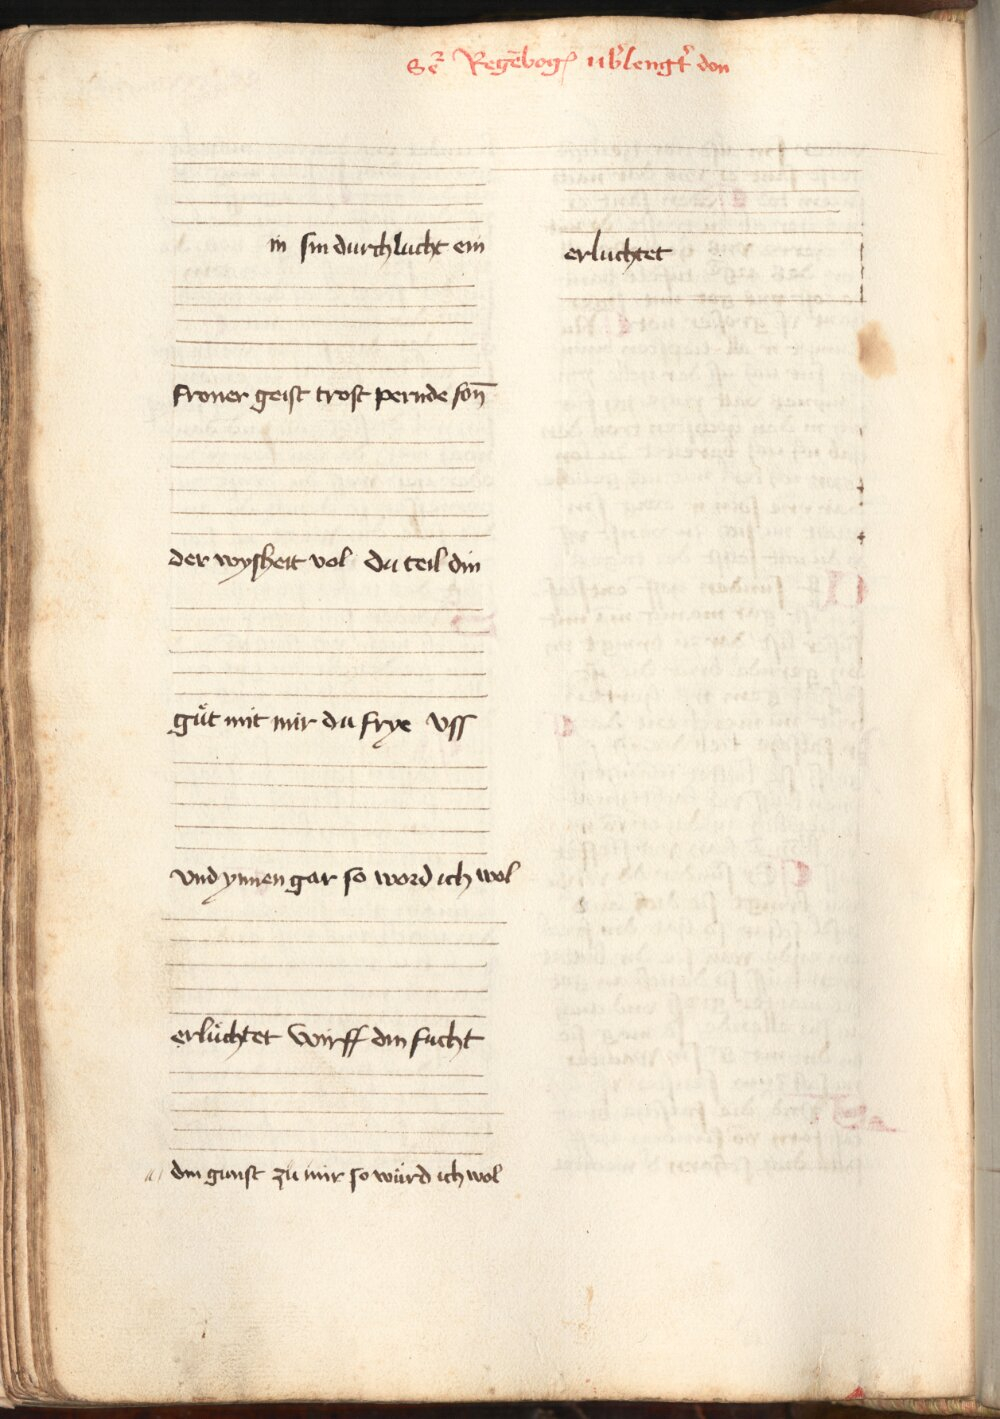 Regēbog͛ ub͛lengt͛ don
in sin durchlucht ein
froner geist trost pernde son̄
der wysheit vol du teil din
guͤt mit mir du frye vss
vnd ynnen gar so word ich wol
erluͤchtet wirff din fucht
din gunst zu mir so wuͤrd ich wol
erluchtet